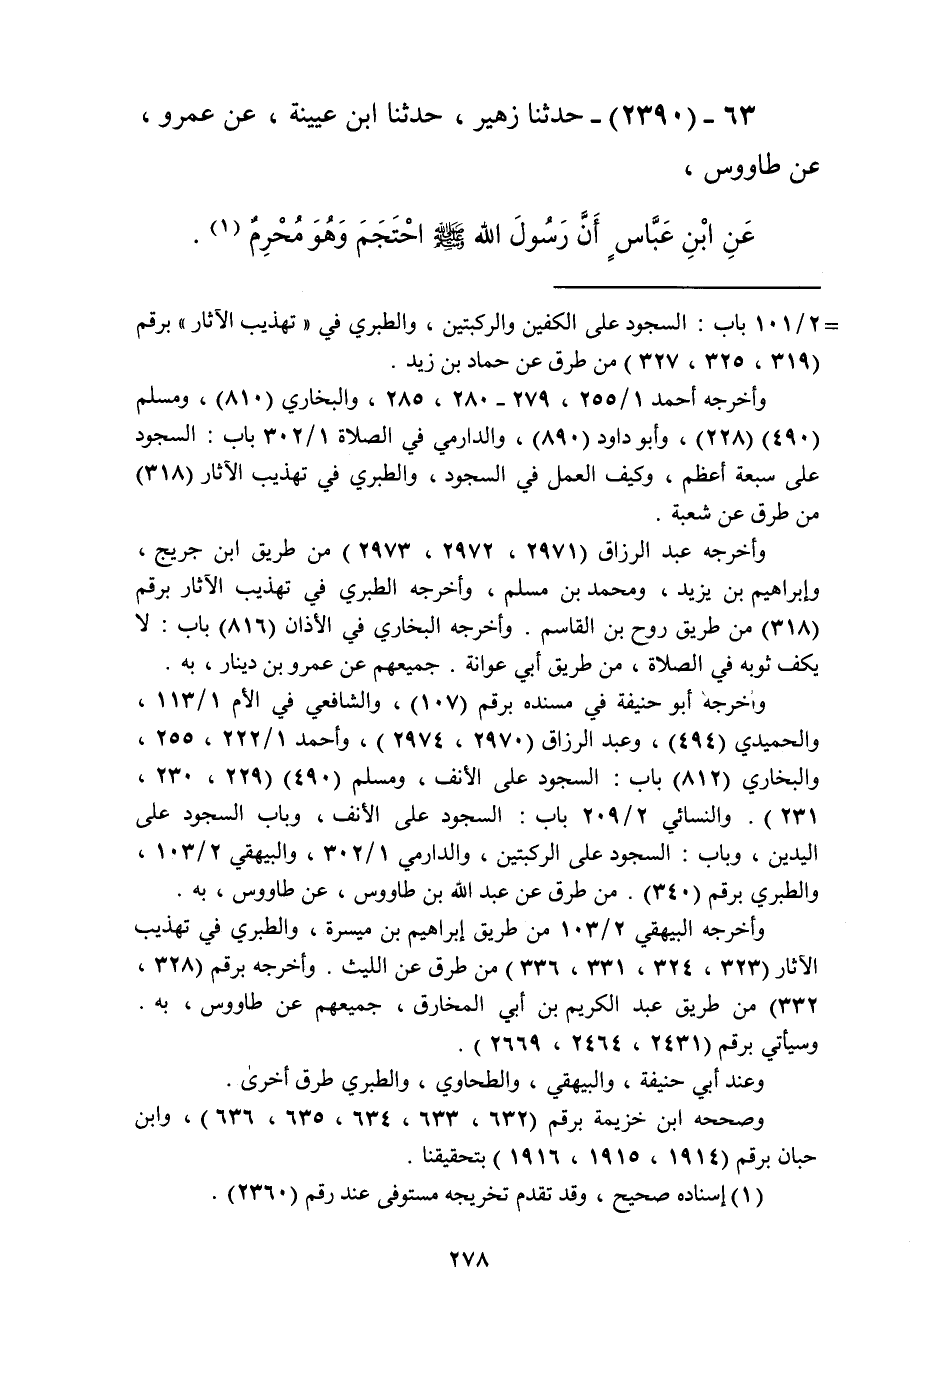 ٦٣ - (٢٣٩٠) - حدثنا زهير ، حدثنا ابن عيينة ، عن عمرو ،
عن طاووس ،
عَنِ ابْنِ عَبَّاسٍ أَنَّ رَسُولَ الله ﷺ احْتَجَمَ وَهُوَ مُحْرِمٌ (١) .
= ١٠١/٢ باب : السجود على الكفين والركبتين ، والطبري في « تهذيب الآثار » برقم
(٣١٩ ، ٣٢٥ ، ٣٢٧ ) من طرق عن حماد بن زيد .
وأخرجه أحمد ٢٥٥/١ ، ٢٧٩ - ٢٨٠ ، ٢٨٥ ، والبخاري (٨١٠) ، ومسلم
(٤٩٠) (٢٢٨) ، وأبو داود (٨٩٠) ، والدارمي في الصلاة ٣٠٢/١ باب : السجود
على سبعة أعظم ، وكيف العمل في السجود ، والطبري في تهذيب الآثار (٣١٨)
من طرق عن شعبة .
وأخرجه عبد الرزاق (٢٩٧١ ، ٢٩٧٢ ، ٢٩٧٣ ) من طريق ابن جريج ،
وإبراهيم بن يزيد ، ومحمد بن مسلم ، وأخرجه الطبري في تهذيب الآثار برقم
(٣١٨) من طريق روح بن القاسم . وأخرجه البخاري في الأذان (٨١٦) باب : لا
يكف ثوبه في الصلاة ، من طريق أبي عوانة . جميعهم عن عمرو بن دينار ، به .
وأخرجه أبو حنيفة في مسنده برقم (١٠٧) ، والشافعي في الأم ١١٣/١ ،
والحميدي (٤٩٤) ، وعبد الرزاق (٢٩٧٠ ، ٢٩٧٤ ) ، وأحمد ٢٢٢/١ ، ٢٥٥ ،
والبخاري (٨١٢) باب : السجود على الأنف ، ومسلم (٤٩٠) (٢٢٩ ، ٢٣٠ ،
٢٣١ ) . والنسائي ٢٠٩/٢ باب : السجود على الأنف ، وباب السجود على
اليدين ، وباب : السجود على الركبتين ، والدارمي ٣٠٢/١ ، والبيهقي ١٠٣/٢ ،
والطبري برقم (٣٤٠) . من طرق عن عبد الله بن طاووس ، عن طاووس ، به .
وأخرجه البيهقي ١٠٣/٢ من طريق إبراهيم بن ميسرة ، والطبري في تهذيب
الآثار (٣٢٣ ، ٣٢٤ ، ٣٣١ ، ٣٣٦ ) من طرق عن الليث . وأخرجه برقم (٣٢٨ ،
٣٣٢) من طريق عبد الكريم بن أبي المخارق ، جميعهم عن طاووس ، به .
وسيأتي برقم (٢٤٣١ ، ٢٤٦٤ ، ٢٦٦٩ ) .
وعند أبي حنيفة ، والبيهقي ، والطحاوي ، والطبري طرق أخرىٰ .
وصححه ابن خزيمة برقم (٦٣٢ ، ٦٣٣ ، ٦٣٤ ، ٦٣٥ ، ٦٣٦ ) ، وابن
حبان برقم (١٩١٤ ، ١٩١٥ ، ١٩١٦ ) بتحقيقنا .
(١) إسناده صحيح ، وقد تقدم تخريجه مستوفى عند رقم (٢٣٦٠) .
٢٧٨